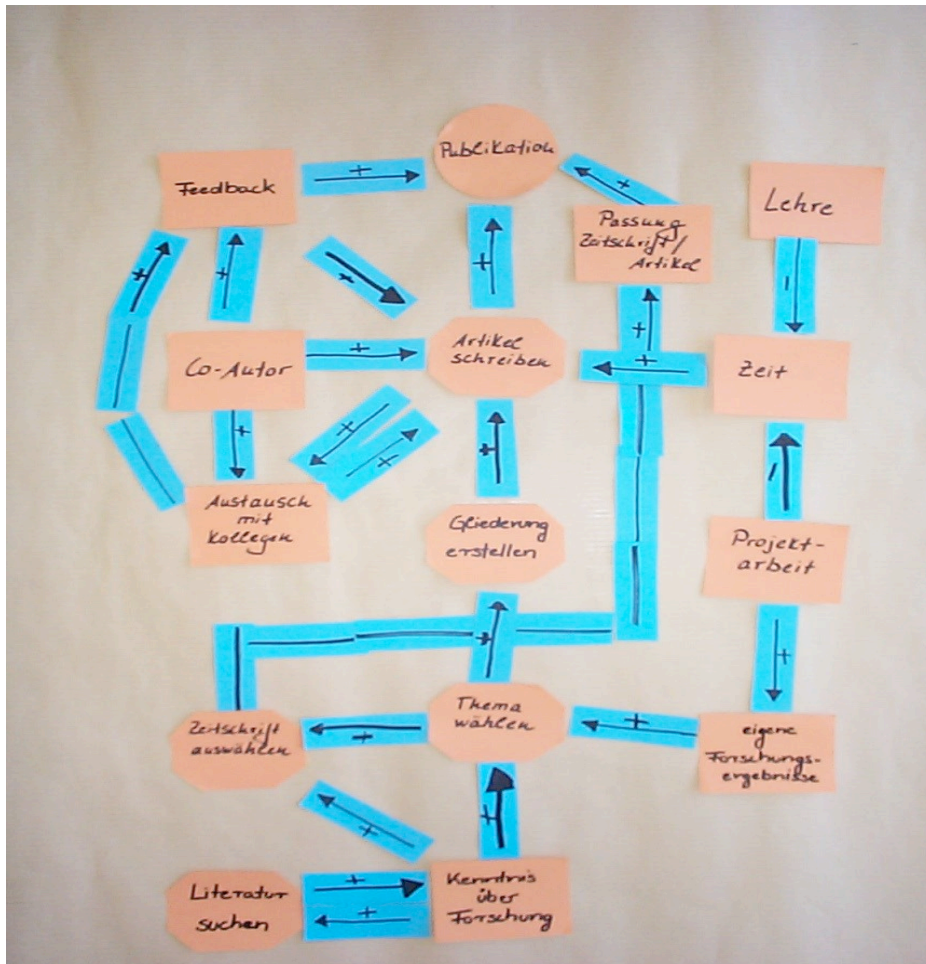 Publikation
Feedback
+
+
Passung
Zeitschrift/
Artikel
Lehre
+
+
+
+
-
Co-Autor
+
Artikel
schreiben
+
+
Zeit
+
+
+
+
-
Austausch
mit
Kollegen
Gliederung
erstellen
Projekt-
arbeit
+
+
Zeitschrift
auswählen
+
Thema
wählen
+
eigene
Forschungs-
ergebnisse
+
+
Literatur
suchen
+
+
Kenntnis
über
Forschung